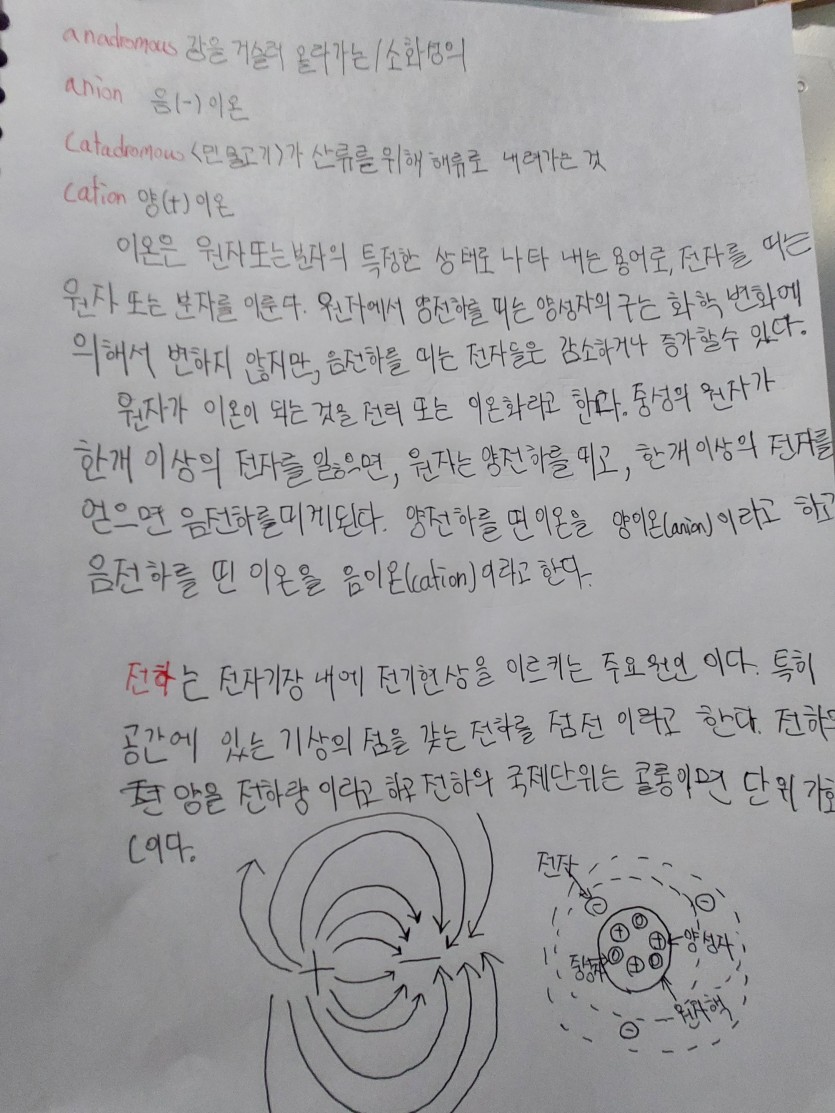 anadromous 강을 거슬러 올라가는/소화성의
anion 음(-)이온
Catadromous <민물고기>가 산류를 위해 해류로 내려가는 것
Cation 양(+)이온
이온은 원자또는분자의 특정한 상태로 나타 내는 용어로, 전자를 띠는
원자 또는 분자를 이룬다. 원자에서 양전하를 띠는 양성자의 구는 화학 변화에
의해서 변하지 않지만, 음전하를 띠는 전자들은 감소하거나 증가할수 있다.
원자가 이온이 되는 것을 전리 또는 이온화라고 한다. 중성의 원자가
한개 이상의 전자를 잃으면, 원자는 양전하를 띠고, 한개 이상의 전자를
얻으면 음전하를띠게된다. 양전하를 띤 이온을 양이온(anion)이라고 하고
음전하를 띤 이온을 음이온(cation)이라고 한다.
전하는 전자기장 내에 전기현상을 이르키는 주요원인 이다. 특히
공간에 있는 기상의 점을 갖는 전하를 점전 이라고 한다. 전하의
양을 전하량 이라고 하고 전하의 국제단위는 쿨롱이며 단위 기호
C이다.
전자
+ −
양성자
중성자
원자핵